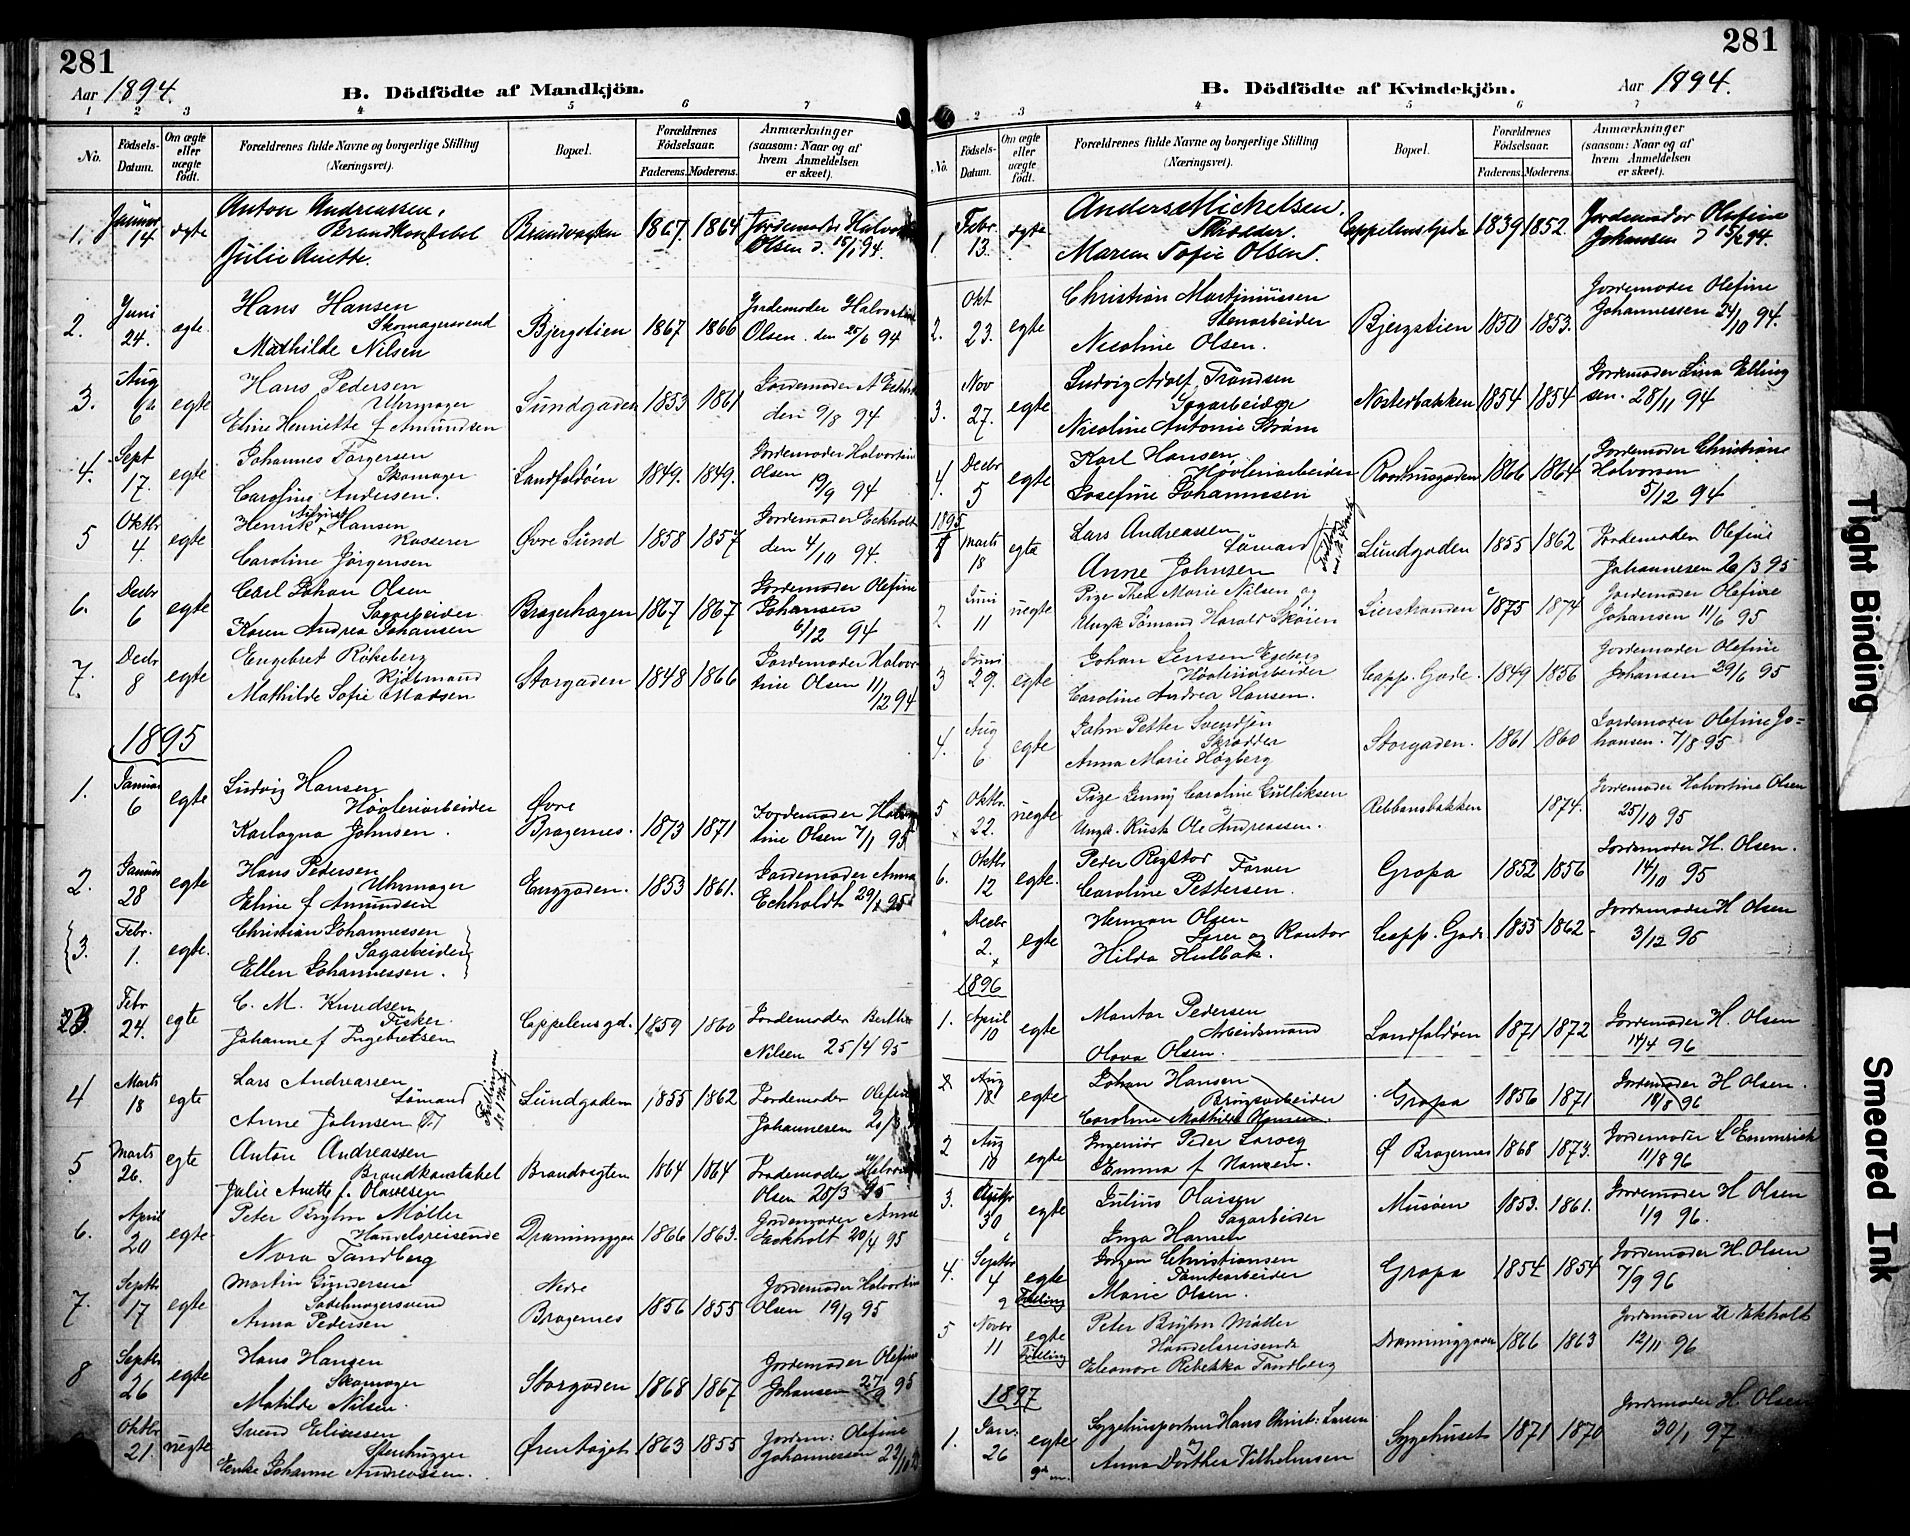 281
Aar 1894.
B. Dödfödte af Mandkjön.
1 2 3 4 5 6 7
No. Fødsels-Datum. Om ægte eller uægte født. Forældrenes fulde Navne og borgerlige Stilling (Næringsvei). Bopæl. Forældrenes Fødselsaar. Faderens. Moderens. Anmærkninger (saasom: Naar og af hvem Anmeldelsen er skeet).
1. Januar 14 ægte Anton Andreassen,
Brandkonstabel
Julie Anette. Brandvagten 1867. 1864 Jordemoder Halvor
Olsen d. 15/1 94.
2. Juni 24. ægte Hans Hansen
Skomagersvend
Mathilde Nilsen Bjergstien 1867 1866 Jordemoder Halvortine
Olsen den 25/6 94
3. Aug 6 egte Hans Pedersen
Uhrmager
Eline Henriette f Amundsen Sundgaden 1853 1861 Jordemoder A Eckholt
den 9/8 94
4. Sept 17. egte Johannes Torgersen
Skomager
Caroline Andersen. Landfaldøen 1849. 1849. Jordemoder Halvortine
Olsen 19/9 94
5 Oktbr 4 egte Henrik Hansen
Kasserer
Caroline Jørgensen Øvre Sund 1858 1857 Jordemoder Eckholt
den 4/10 94.
6. Decbr 6 egte Carl Johan Olsen
Sagarbeider
Karen Andrea Johansen Bragerhagen 1867 1867 Jordemoder Olefine
Johansen
6/12 94
7. Decbr 8 egte Engebret Røkeberg
Kjøbmand
Mathilde Sofie Madsen Storgaden 1848 1866 Jordemoder Halvor
tine Olsen 11/12 94
1895
1. Januar 6 egte Ludvig Hansen
Høvleriarbeider
Karlagna Johnsen. Øvre
Bragernes. 1873 1871 Jordemoder Halvor
tine Olsen 7/1 95.
2. Januar 28 egte Hans Pedersen
Uhrmager
Eline f Amundsen Enggaden. 1853 1861. Jordemoder Anna
Eckholdt 29/1 95
3. Febr. 1. egte. Christian Johannessen
Sagarbeider
Ellen Johannessen.
3. Febr 24. egte C. M. Knudsen
Fisker.
Johanne f Ingebretsen Cappelens gd. 1859 1860 Jordemoder Berthe
Nilsen 25/4 95
4 Marts 18 egte Lars Andreassen
Sømand
Anne Johnsen Tvillinger Sundgaden 1855 1862 Jordemoder Olefine
Johannesen 20/3
5 Marts 26. egte Anton Andreassen
Brandkonstabel
Julie Anette f. Olavesen Brandvagten 1864 1864 Jordemoder Halvor
Olsen 28/3 95
6. April 20 egte Peter Bryhn Møller
Handelsreisende
Nora Tandberg Dramminggaa 1866 1863. Jordemoder Anna
Eckholt 20/4 95
7. Septbr 17 egte Martin Gundersen
Sadelmagersvend
Anna Pedersen Nedre
Bragernes 1856 1855 Jordemoder Halvortine
Olsen 19/9 95
8 Septbr 26 egte Hans Hansen
Skomager
Matilde Nilsen. Storgaden 1868 1867 Jordemoder Olefine
Johansen 27/9 95
Oktbr 21. uegte Svend Eliassen
Stenhugger
Enke Johanne Andreassen. Ørentoget 1863 1855 Jordem: Olefine
Johannessen 22/10
281
Aar 1894.
B. Dödfödte af Kvindekjön.
2 3 4 5 6 7
No. Fødsels-Datum. Om ægte eller uægte født. Forældrenes fulde Navne og borgerlige Stilling (Næringsvei). Bopæl. Forældrenes Fødselsaar. Faderens. Moderens. Anmærkninger (saasom: Naar og af hvem Anmeldelsen er skeet).
1 Febr 13. ægte Anders Mickelsen.
Skrædder.
Maren Sofie Olsen. Cappelensgade 1839 1852. Jordemoder Olefine
Johansen d 15/2 94.
2. Okt 23. egte Christian Martiniussen
Stenarbeider
Nicoline Olsen. Bjergstien 1850 1853. Jordemoder Olefine
Johannessen 24/10 94.
3. Nov 27. egte Ludvig Adolf Trondsen
Sagarbeider
Nicoline Antonie Strøm Nosterbakken 1854 1854 Jordemoder Lina Elling
sen. 28/11 94
4. Decbr 5 egte Karl Hansen
Høvleriarbeider
Josefine Johannessen Raadhusgaden 1866 1864 Jordemoder Christiane
Halvorsen
5/12 94
1895
1 Marts 18 egte Lars Andreassen
Sømand
Anne Johnsen Sundgaden 1855 1862 Jordemoder Olefine
Johannesen 26/3 95
2 Juni 11 uegte Pige Thea Marie Nilsen og
Ungk Sømand Harald Skøien Lierstranden 1875 1874 Jordemoder Olefine
Johansen 11/6 95
3 Juni 29. egte Johan Jensen Egeberg
Høvleriarbeider
Caroline Andrea Hansen. Capp. Gade. 1849 1856 Jordemoder Olefine
Johansen 29/6 95
4. Aug 6 egte John Petter Svendsen
Skrædder
Anna Marie Høgberg Storgaden. 1861 1860 Jordemoder Olefine Jo-
hansen. 7/8 95
5 Oktbr. 22. uegte Pige Jenny Caroline Gulliksen
Ungk. Kusk Ole Andreassen. Rebbansbakken 1874. Jordemoder Halvortine Olsen
25/10 95
6. Oktbr 12 egte. Peder Rigstor
Farver
Caroline Pettersen. Gropa 1852 1856 Jordemoder H. Olsen.
14/10 95
Decbr 2. egte Herman Olsen
Lærer og Kantor
Hilda Hulbak. Capp. Gade 1855 1862 Jordemoder H Olsen
3/12 95
1896
1. April 10 egte Manton Pedersen
Arbeidsmand
Olava Olsen. Landfaldøen 1871 1872 Jordemoder H. Olsen
14/4 96
2 Aug 18 egte Johan Hansen
Brugsarbeider
Caroline Mathilde Hansen. Gropa 1856 1871 Jordemoder H Olsen.
18/8 96
2 Aug 10 egte Ingeniør Peder Larsen
Emma f Hansen. Ø Bragernes 1868 1873. Jordemoder L Emmrick
11/8 96
3. 30 egte Julius Olaisen
Sagarbeider
Inga Hansen Musøen 1853. 1861. Jordemoder H Olsen
1/9 96.
4. Septbr 4 egte Jørgen Christiansen
Tomtearbeider
Marie Olsen. Gropa 1854 1854 Jordemoder H. Olsen
7/9 96
5 Novbr 11 egte Tvilling Peter Bryhn Møller
Handelsreisende
Eleonore Rebekka Tandberg Dramminggaden 1866 1863 Jordemoder A Eckholt
12/11 96
1897
1. Jan. 26 egte Sygehusportner Hans Christ: Larsen
og
Anna Dorthea Vilhelmsen Sygehuset 1871 1870 Jordemoder H. Olsen
30/1 97
Tight Binding
Smeared Ink